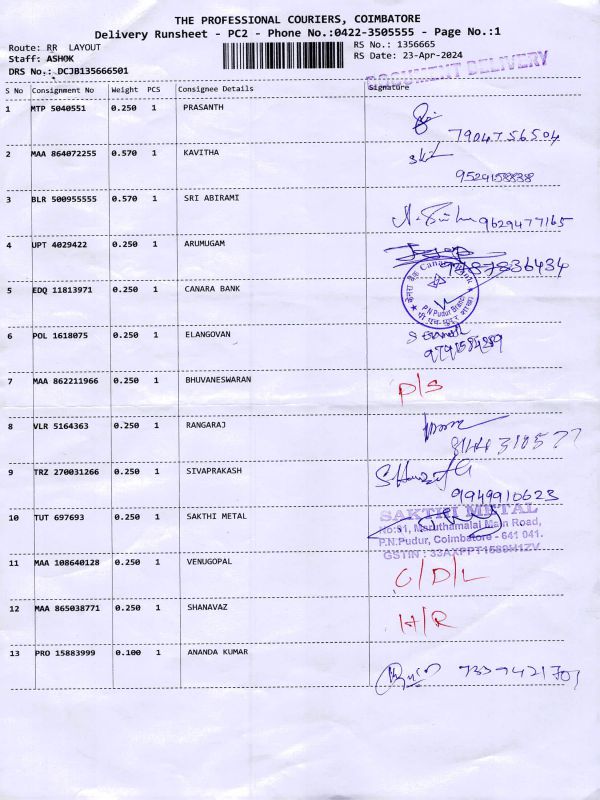 THE PROFESSIONAL COURIERS, COIMBATORE
Delivery Runsheet - PC2 - Phone No.:0422-3505555 - Page No.:1
Route: RR LAYOUT
RS No.: 1356665
Staff: ASHOK
RS Date: 23-Apr-2024
DRS No.: DCJB135666501
DOCUMENT DELIVERY
S No Consignment No Weight PCS Consignee Details Signature
1 MTP 5040551 0.250 1 PRASANTH
7904756504
2 MAA 864072255 0.570 1 KAVITHA
9524158838
3 BLR 500955555 0.570 1 SRI ABIRAMI
9629477165
4 UPT 4029422 0.250 1 ARUMUGAM
9787836434
5 EDQ 11813971 0.250 1 CANARA BANK
केनरा बैंक Canara Bank
P.N Pudur Branch
6 POL 1618075 0.250 1 ELANGOVAN
7 MAA 862211966 0.250 1 BHUVANESWARAN D/S
8 VLR 5164363 0.250 1 RANGARAJ
9 TRZ 270031266 0.250 1 SIVAPRAKASH
9949910623
10 TUT 697693 0.250 1 SAKTHI METAL
SAKTHI METAL
No:91, Maruthamalai Main Road,
P.N.Pudur, Coimbatore - 641 041.
GSTIN :
11 MAA 108640128 0.250 1 VENUGOPAL C/D/L
12 MAA 865038771 0.250 1 SHANAVAZ H/R
13 PRO 15883999 0.100 1 ANANDA KUMAR